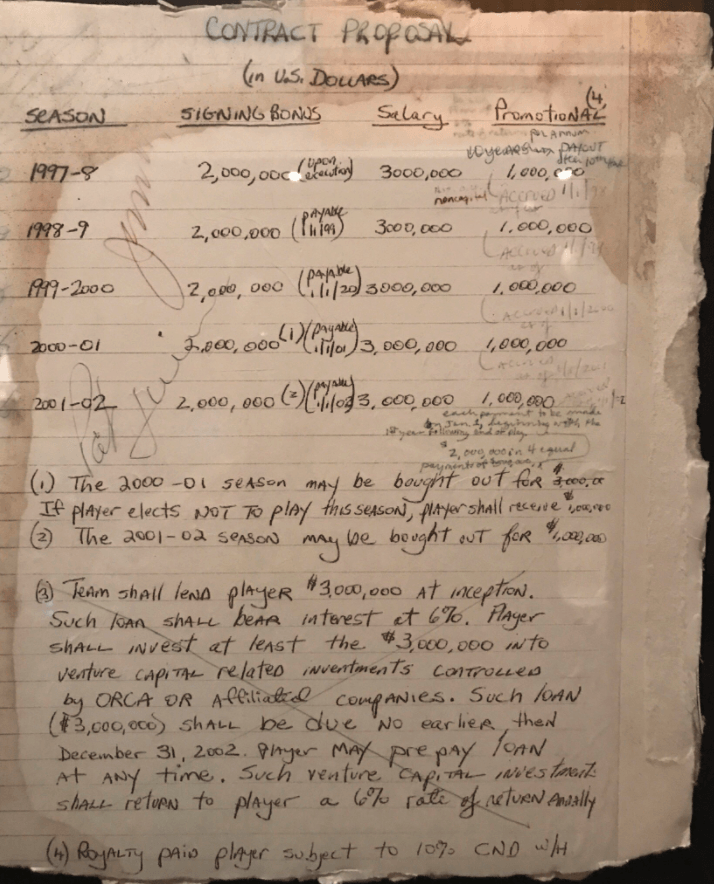 CONTRACT PROPOSAL
(in U.S. DOLLARS)
SEASON SIGNING BONUS Salary Promotional (4,
per annum
10 years PAYOUT
1997-8 2,000,000 (upon execution) 3000,000 1,000,000
noncapital (ACCRUED 1/1/
1998-9 2,000,000 (PAYABLE 1/1/99) 3000,000 1,000,000
(ACCRUED 1/1/99
as of
1999-2000 2,000,000 (payable 1/1/20) 3000,000 1,000,000
(ACCRUED 1/1/2000
as of
2000-01 2,000,000 (1) (payable 1/1/01) 3,000,000 1,000,000
(ACCRUED
as of
2001-02 2,000,000 (2) (payable 1/1/02) 3,000,000 1,000,000
each payment to be made
on Jan 1, beginning with the
1st year following end of play
$2,000,000 in 4 equal
payments of
(1) The 2000-01 season may be bought out for $3,000,00
If player elects NOT TO play this season, player shall receive $1,000,000
(2) The 2001-02 season may be bought out for $1,000,000
(3) Team shall lend player $3,000,000 AT inception.
Such loan shall bear interest at 6%. Player
shall invest at least the $3,000,000 into
venture capital related inventments controlled
by ORCA OR Affiliated companies. Such loan
($3,000,000) shall be due no earlier then
December 31, 2002. Player may prepay loan
AT ANY time. Such venture capital investment
shall return to player a 6% rate of return Anally
(4) Royalty paid player subject to 10% CND W/H